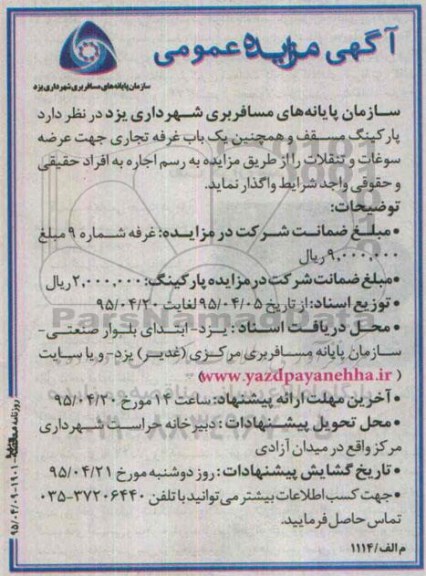 آگهی مزایده عمومی
سازمان پایانه‌های مسافربری شهرداری یزد
سازمان پایانه‌های مسافربری شهرداری یزد در نظر دارد
پارکینگ مسقف و همچنین یک باب غرفه تجاری جهت عرضه
سوغات و تنقلات را از طریق مزایده به رسم اجاره به افراد حقیقی
و حقوقی واجد شرایط واگذار نماید.
توضیحات:
•مبلغ ضمانت شرکت در مزایده: غرفه شماره ۹ مبلغ
۹,۰۰۰,۰۰۰ ریال
•مبلغ ضمانت شرکت در مزایده پارکینگ: ۲,۰۰۰,۰۰۰ ریال
•توزیع اسناد: از تاریخ ۹۵/۰۴/۰۵ لغایت ۹۵/۰۴/۲۰
•محل دریافت اسناد: یزد- ابتدای بلوار صنعتی-
سازمان پایانه مسافربری مرکزی (غدیر) یزد- و یا سایت
(www.yazdpayanehha.ir)
•آخرین مهلت ارائه پیشنهاد: ساعت ۱۴ مورخ ۹۵/۰۴/۲۰
•محل تحویل پیشنهادات: دبیرخانه حراست شهرداری
مرکز واقع در میدان آزادی
•تاریخ گشایش پیشنهادات: روز دوشنبه مورخ ۹۵/۰۴/۲۱
•جهت کسب اطلاعات بیشتر می‌توانید با تلفن ۳۷۲۰۶۴۴۰-۰۳۵
تماس حاصل فرمایید.
م الف/۱۱۱۴
ParsNamadData